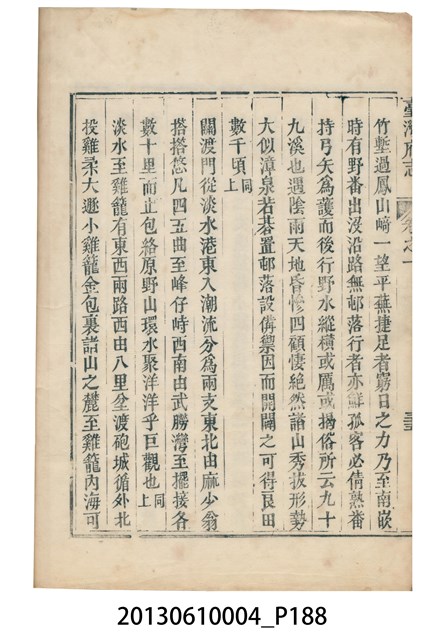 臺灣府志
卷之一
竹塹過鳳山崎一望平蕪捷足者窮日之力乃至南嵌
時有野番出沒沿路無邨落行者亦鮮孤客必倩熟番
持弓矢為護而後行野水縱橫或厲或揭俗所云九十
九溪也遇陰雨天地昏慘四顧悽絶然諸山秀拔形勢
大似漳泉若碁置邨落設備禦因而開闢之可得良田
數千頃同上
關渡門從淡水港東入潮流分為兩支東北由麻少翁
搭搭悠凡四五曲至峰仔峙西南由武勝灣至擺接各
數十里而止包絡原野山環水聚洋洋乎巨觀也同上
淡水至雞籠有東西兩路西由八里坌渡砲城循外北
投雞柔大遯小雞籠金包裏諸山之麓至雞籠內海可
20130610004_P188